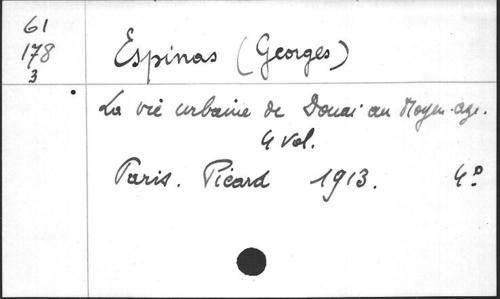 61
178
3
Espinas (Georges)
La vie urbaine de Douai au Moyen-age.
4 vol.
Paris. Picard 1913. 4°